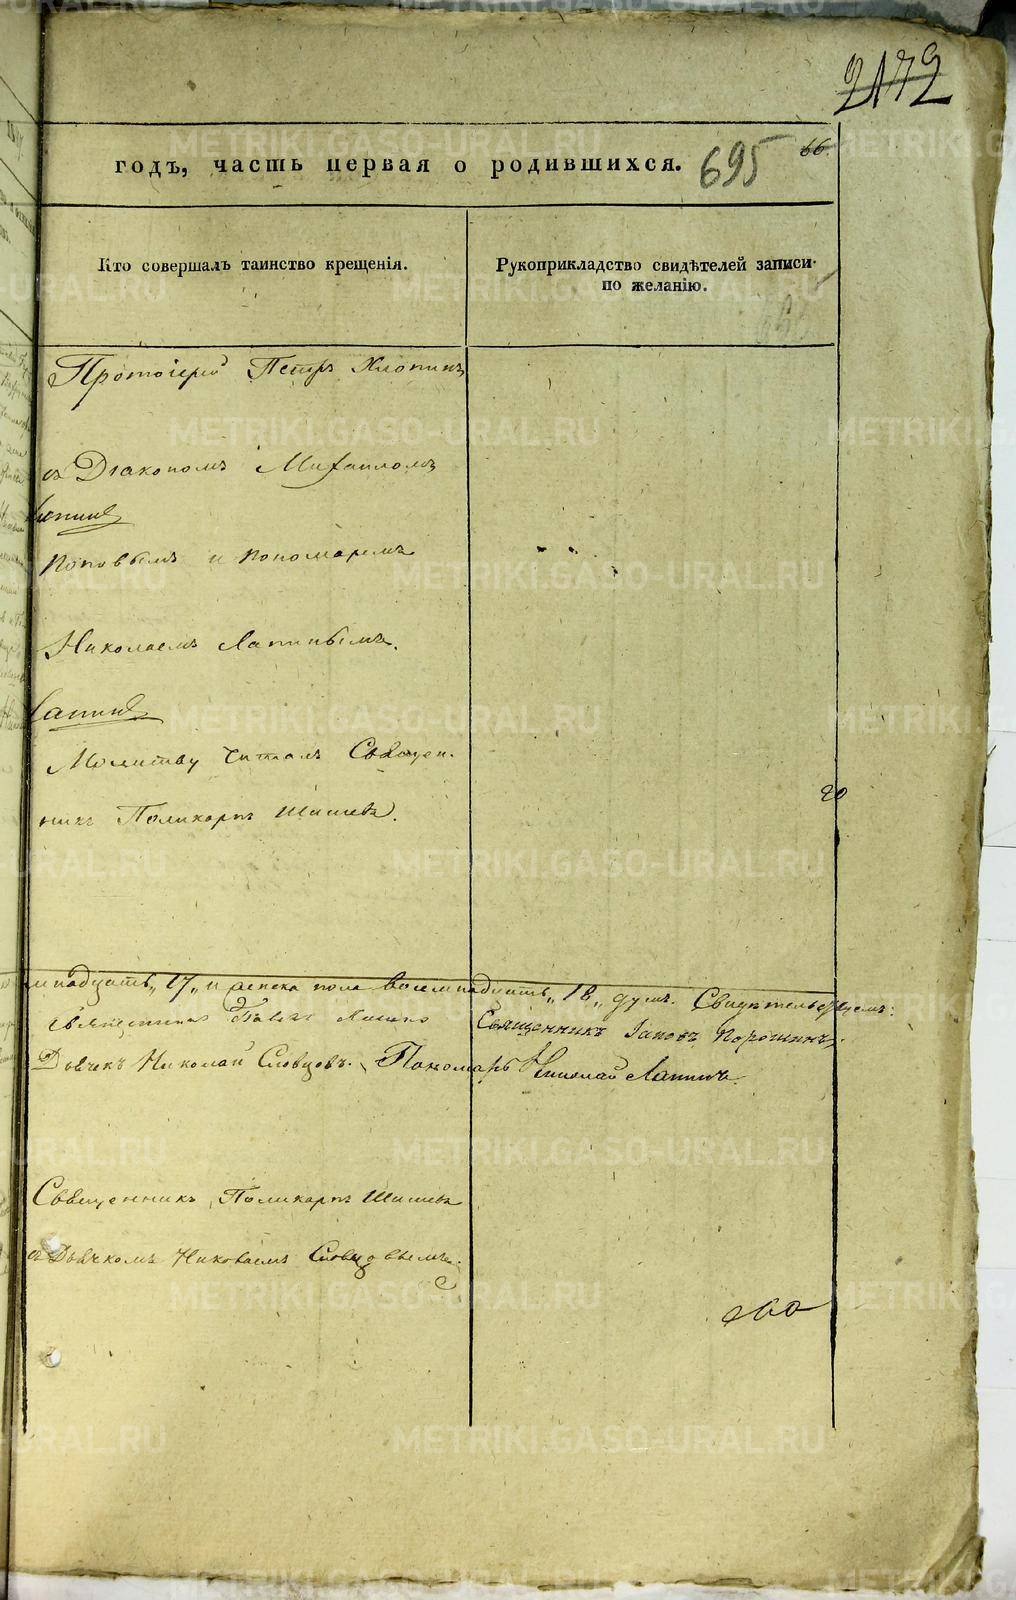 2172
годъ, часть первая о родившихся. 695 66.
Кто совершалъ таинство крещенія.
Рукоприкладство свидѣтелей записи по желанію.
Протоіерей Петръ Хлопинъ
съ Діакономъ Михаиломъ
Поповымъ и пономаремъ
Николаемъ Лапинымъ.
Молитву читалъ Священ-
никъ Поликарпъ Шишевъ.
20
надцать „17„ и женска пола восемнадцать „18„ душъ. Свидѣтельствуемъ:
Священникъ Іаковъ Порошинъ.
Дьячекъ Николай Словцовъ. Пономарь Николай Лапинъ
Священникъ Поликарпъ Шишевъ
съ Дьячкомъ Николаемъ Словцовымъ.
METRIKI.GASO-URAL.RU